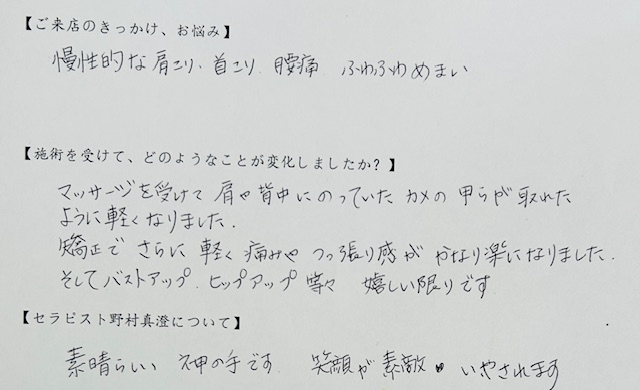 【ご来店のきっかけ、お悩み】
慢性的な肩こり、首こり、腰痛 ふわふわめまい
【施術を受けて、どのようなことが変化しましたか？】
マッサージを受けて 肩や背中にのっていた カメの甲らが取れた
ように軽くなりました。
矯正で さらに 軽く 痛みや つっ張り感が かなり楽になりました.
そしてバストアップ、ヒップアップ等々 嬉しい限りです
【セラピスト野村真澄について】
素晴らしい 神の手です 笑顔が素敵♥ いやされます